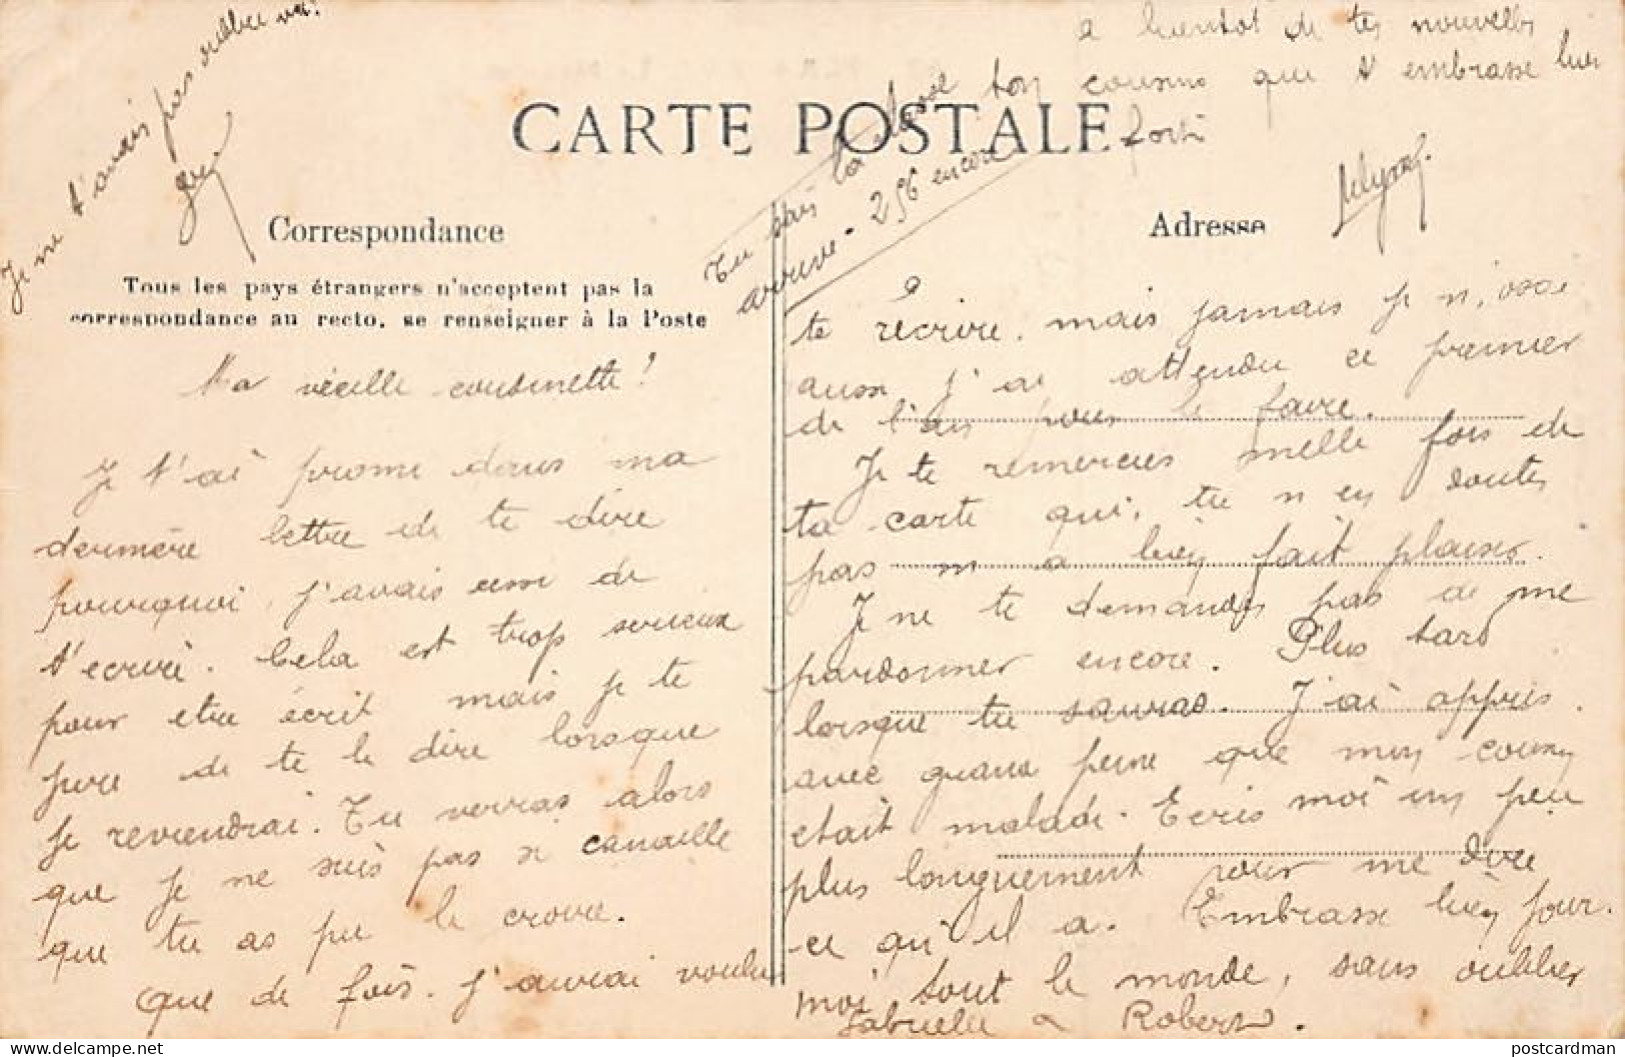 Je ne t'avais pas oublié va!
a bientot de tes nouvelles
ton cousin que t embrasse bien
fort
CARTE POSTALE
Tu sais la classe
arrive - 256 encore
Correspondance
Adresse
Tous les pays étrangers n'acceptent pas la
correspondance au recto, se renseigner à la Poste
Ma vieille cousinette!
Je t'ai promi dans ma
dernière lettre de te dire
pourquoi, j'avais cessé de
t'ecrire. Cela est trop serieux
pour etre écrit mais je te
jure de te le dire lorsque
je reviendrai. Tu verras alors
que je ne suis pas si canaille
que tu as pu le croire.
Que de fois. J'aurai voulu
te récrire. mais jamais je n'osai
aussi j'ai attendu ce premier
de l'an pour le faire.
Je te remercies mille fois de
ta carte qui, tu n en doutes
pas m a bien fait plaisir.
Je ne te demandes pas de me
pardonner encore. Plus tard
lorsque tu sauras. J'ai appris
avec grand peine que mon cousin
etait malade. Ecris moi un peu
plus longuement pour me dire
ce qu'il a. Embrasse bien pour
moi tout le monde, sans oublier
Gabrielle & Robert.
postcardman